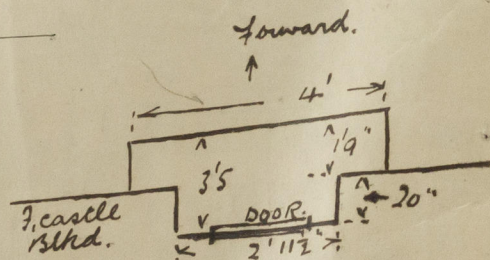 Forward.
4'
1'9"
3'5
20"
DOOR.
F,castle
Blkd.
2' 11½"